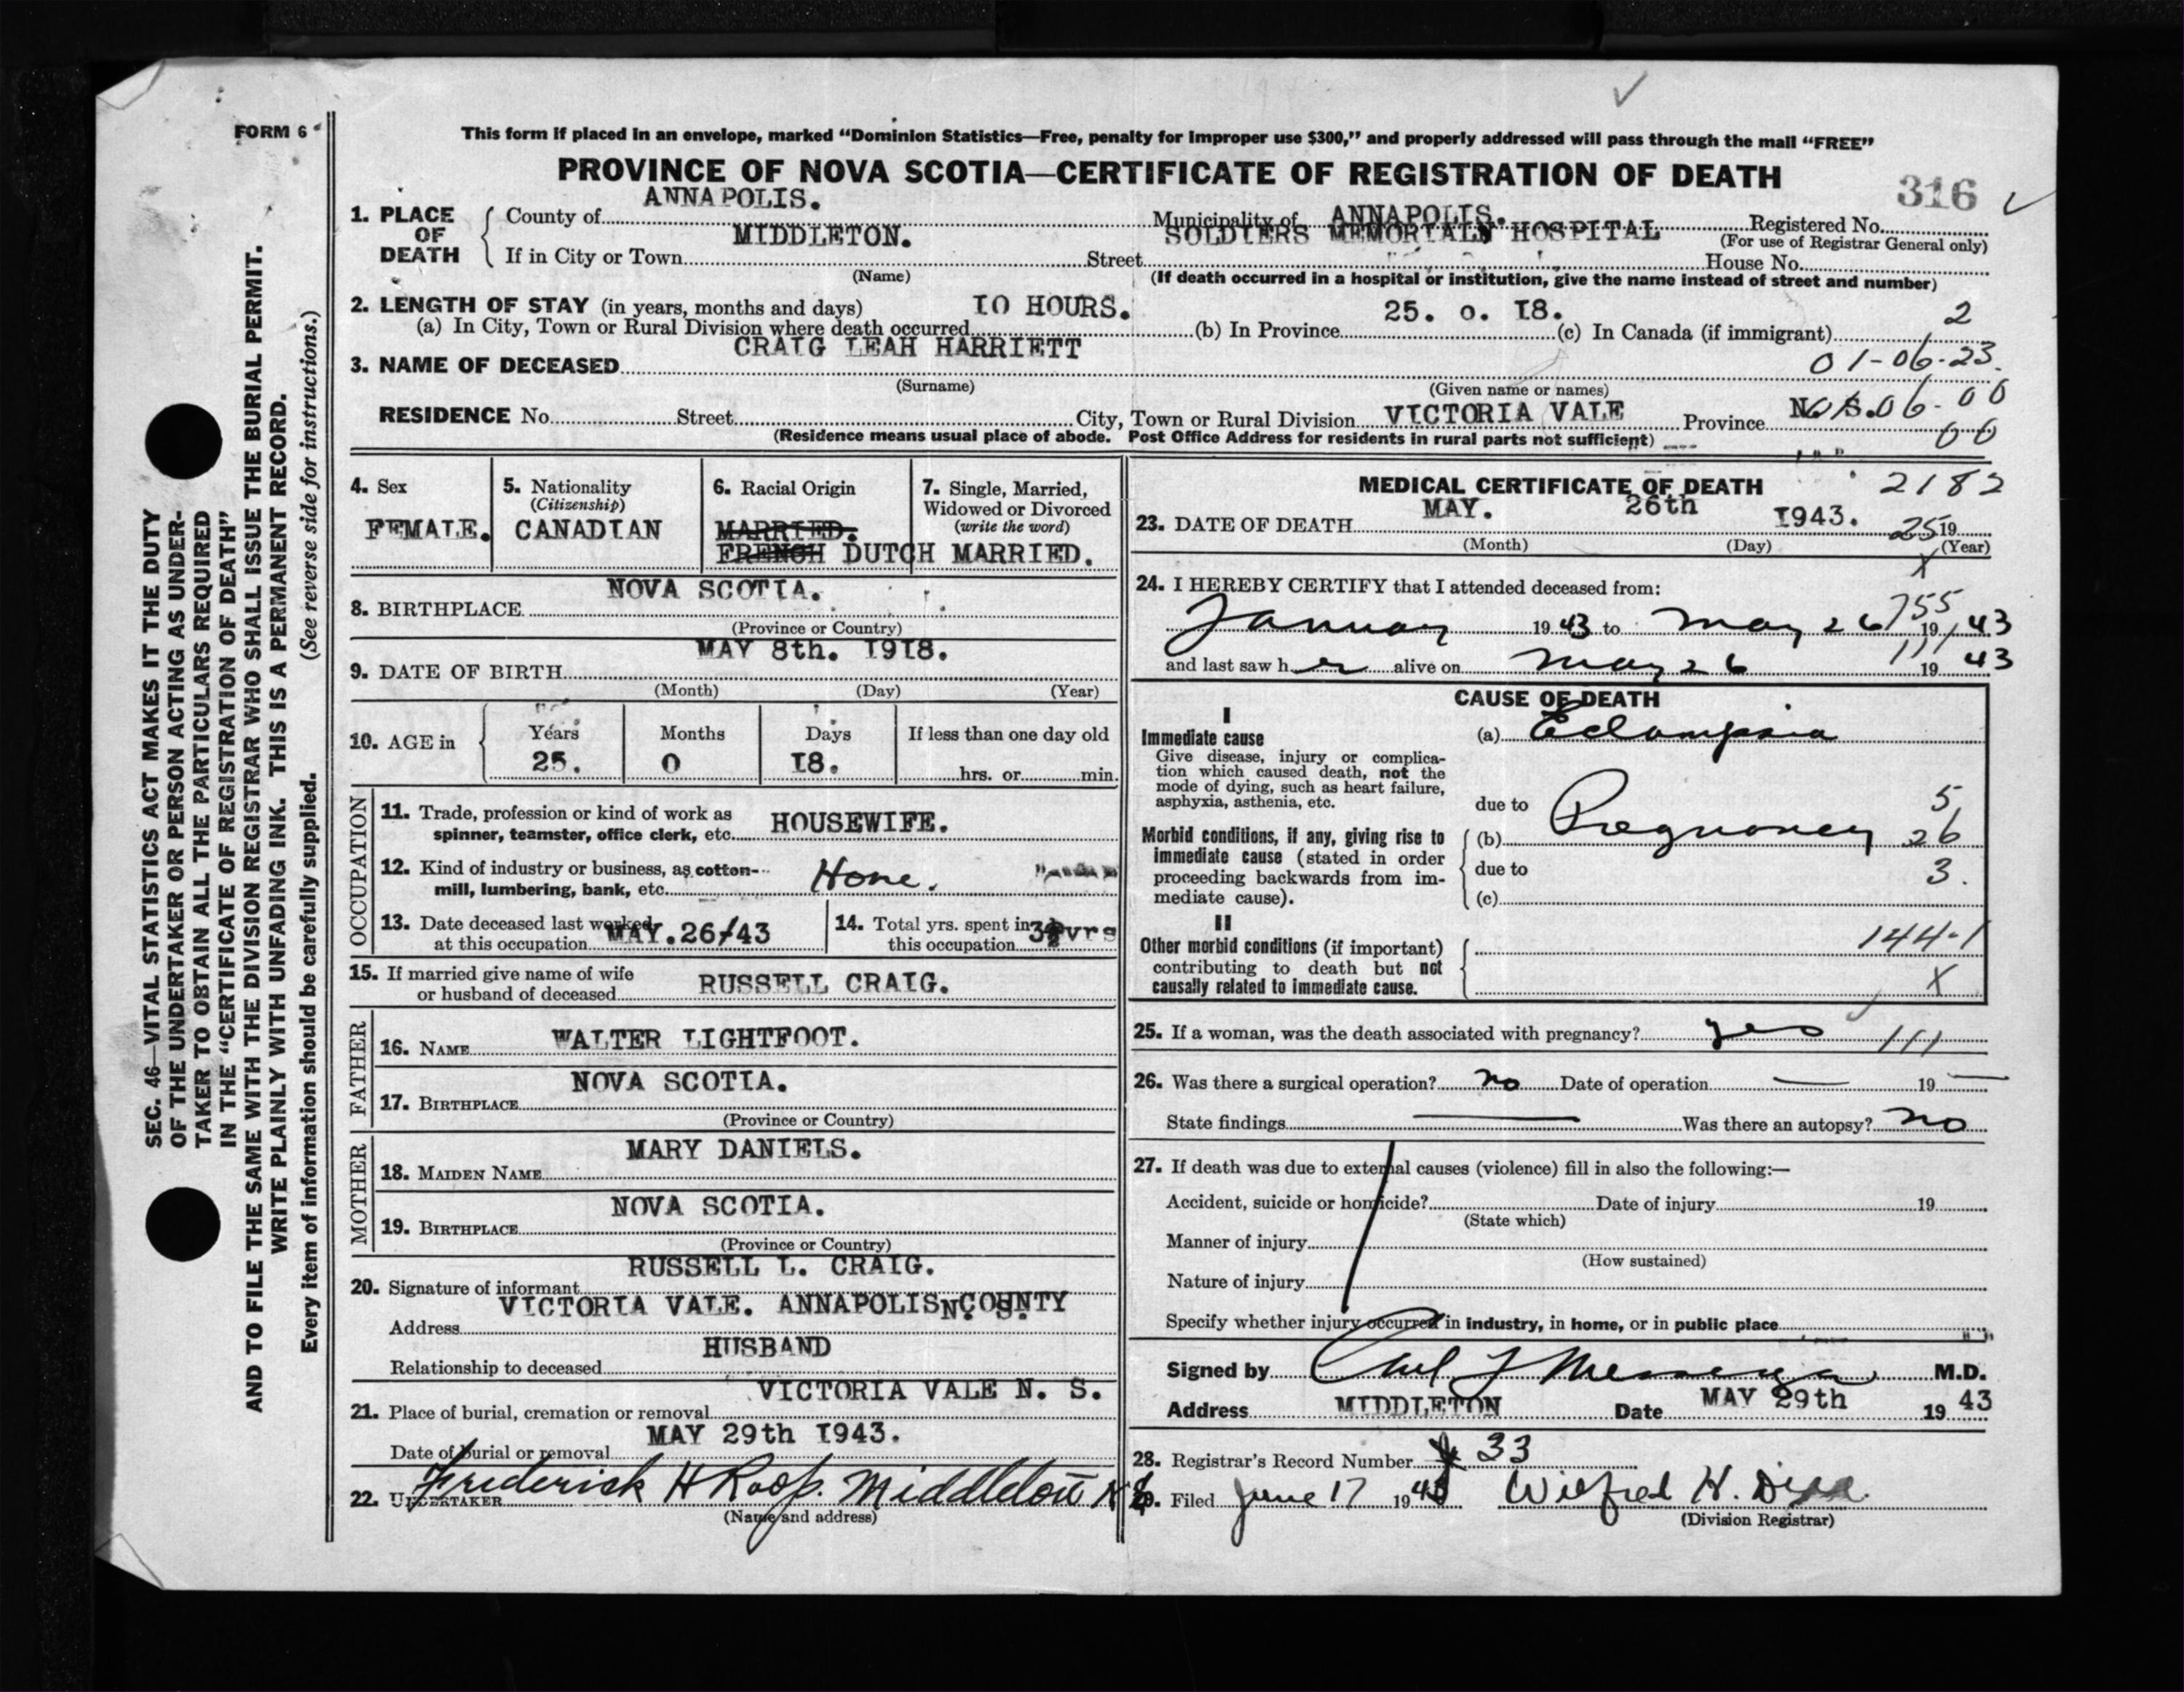 FORM 6
This form if placed in an envelope, marked “Dominion Statistics—Free, penalty for improper use $300,” and properly addressed will pass through the mail “FREE”
PROVINCE OF NOVA SCOTIA—CERTIFICATE OF REGISTRATION OF DEATH
316
1. PLACE OF DEATH
County of ANNAPOLIS. Municipality of ANNAPOLIS. Registered No.
(For use of Registrar General only)
If in City or Town MIDDLETON. Street SOLDIERS MEMORIAL HOSPITAL House No.
(Name) (If death occurred in a hospital or institution, give the name instead of street and number)
2. LENGTH OF STAY (in years, months and days)
(a) In City, Town or Rural Division where death occurred IO HOURS. (b) In Province 25. 0. I8. (c) In Canada (if immigrant) 2
3. NAME OF DECEASED CRAIG LEAH HARRIETT 01-06-23.
(Surname) (Given name or names)
RESIDENCE No. Street City, Town or Rural Division VICTORIA VALE Province N. S. 06-00
(Residence means usual place of abode. Post Office Address for residents in rural parts not sufficient) 00
4. Sex FEMALE.
5. Nationality (Citizenship) CANADIAN
6. Racial Origin MARRIED. FRENCH DUTCH
7. Single, Married, Widowed or Divorced (write the word) MARRIED.
8. BIRTHPLACE NOVA SCOTIA.
(Province or Country)
9. DATE OF BIRTH MAY 8th. I9I8.
(Month) (Day) (Year)
10. AGE in Years 25. Months 0 Days I8. If less than one day old hrs. or min.
OCCUPATION
11. Trade, profession or kind of work as spinner, teamster, office clerk, etc. HOUSEWIFE.
12. Kind of industry or business, as cotton-mill, lumbering, bank, etc. Home.
13. Date deceased last worked at this occupation MAY.26/43
14. Total yrs. spent in this occupation 3½ yrs
15. If married give name of wife or husband of deceased RUSSELL CRAIG.
FATHER
16. NAME WALTER LIGHTFOOT.
17. BIRTHPLACE NOVA SCOTIA.
(Province or Country)
MOTHER
18. MAIDEN NAME MARY DANIELS.
19. BIRTHPLACE NOVA SCOTIA.
(Province or Country)
20. Signature of informant RUSSELL L. CRAIG.
Address VICTORIA VALE. ANNAPOLIS COUNTY N. S.
Relationship to deceased HUSBAND
21. Place of burial, cremation or removal VICTORIA VALE N. S.
Date of burial or removal MAY 29th I943.
22. UNDERTAKER Frederick H Roop. Middleton N S
(Name and address)
MEDICAL CERTIFICATE OF DEATH 2182
23. DATE OF DEATH MAY. 26th I943. 25 19
(Month) (Day) (Year)
X
24. I HEREBY CERTIFY that I attended deceased from:
755
January 19 43 to May 26 19 43
111
and last saw h er alive on May 26 19 43
CAUSE OF DEATH
I
Immediate cause
Give disease, injury or complication which caused death, not the mode of dying, such as heart failure, asphyxia, asthenia, etc.
(a) Eclampsia
due to 5
Morbid conditions, if any, giving rise to immediate cause (stated in order proceeding backwards from immediate cause).
(b) Pregnancy 26
due to 3.
(c)
II
Other morbid conditions (if important) contributing to death but not causally related to immediate cause.
144-1
X
25. If a woman, was the death associated with pregnancy? yes 111
26. Was there a surgical operation? no Date of operation — 19 —
State findings — Was there an autopsy? no
27. If death was due to external causes (violence) fill in also the following:—
Accident, suicide or homicide? Date of injury 19
(State which)
Manner of injury
(How sustained)
Nature of injury
Specify whether injury occurred in industry, in home, or in public place
Signed by M.D.
Address MIDDLETON Date MAY 29th 19 43
28. Registrar's Record Number 33
29. Filed June 17 1943 Wilfred H.
(Division Registrar)
SEC. 46—VITAL STATISTICS ACT MAKES IT THE DUTY
OF THE UNDERTAKER OR PERSON ACTING AS UNDER-
TAKER TO OBTAIN ALL THE PARTICULARS REQUIRED
IN THE “CERTIFICATE OF REGISTRATION OF DEATH”
AND TO FILE THE SAME WITH THE DIVISION REGISTRAR WHO SHALL ISSUE THE BURIAL PERMIT.
WRITE PLAINLY WITH UNFADING INK. THIS IS A PERMANENT RECORD.
Every item of information should be carefully supplied. (See reverse side for instructions.)